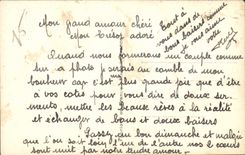 Mon grand amour chéri
Mon trésor adoré
Tout à
vous dans de
bons baisers comme
je vous aime
votre
Quand nous formerons un couple comme
sur la photo je serais au comble de mon
bonheur car c'est plus grande joie que d'être
à vos côtés pour vous dire de doux ser-
ments, mettre les beaux rêves à la réalité
et échanger de bons et doux baisers
Passez un bon dimanche et malgré
que l'on soit loin l'un de l'autre nos 2 cœurs
sont unit par notre tendre amour